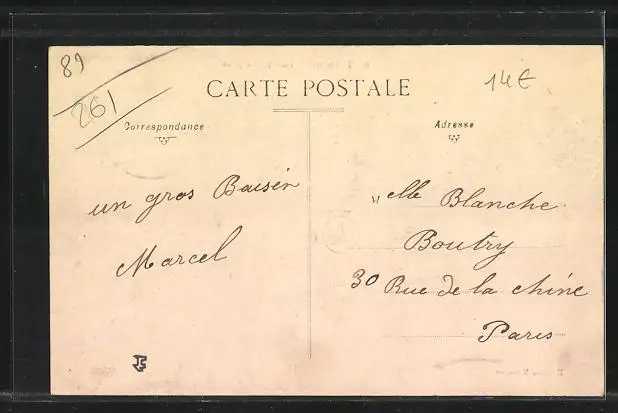 89
261
14€
CARTE POSTALE
Correspondance
Adresse
un gros Baisér
Marcel
Melle Blanche
Boutry
30 Rue de la chine
Paris